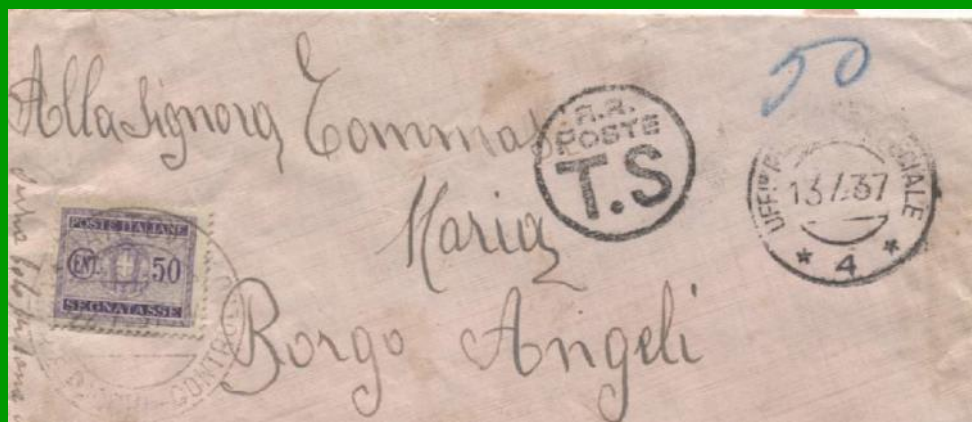 50
Alla Signora Tommaso
Maria
Borgo Angeli
R.R.
POSTE
T.S
UFF CIALE
13 7 37
* 4 *
POSTE ITALIANE
CENT. 50
SEGNATASSE
CONTRO